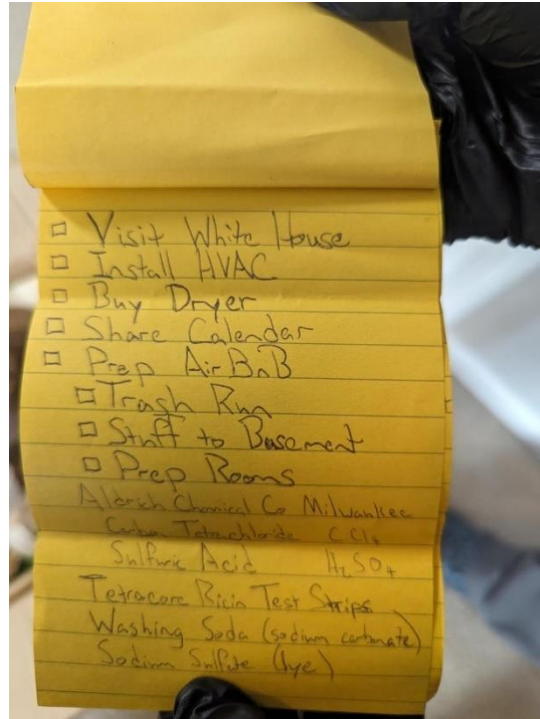 □ Visit White House
□ Install HVAC
□ Buy Dryer
□ Share Calendar
□ Prep AirBnB
□ Trash Run
□ Stuff to Basement
□ Prep Rooms
Aldrich Chemical Co Milwaukee
Carbon Tetrachloride CCl4
Sulfuric Acid H2SO4
Tetracore Ricin Test Strips
Washing Soda (sodium carbonate)
Sodium Sulfate (lye)